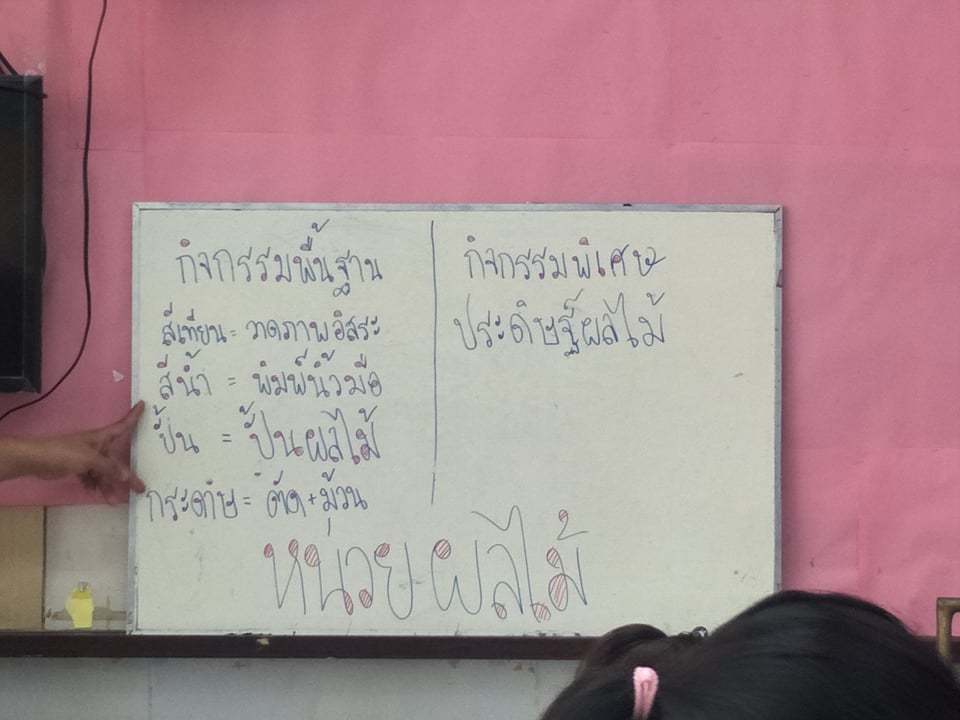 กิจกรรมพื้นฐาน
สีเทียน = วาดภาพอิสระ
สีน้ำ = พิมพ์นิ้วมือ
ปั้น = ปั้นผลไม้
กระดาษ = ตัด + ม้วน
กิจกรรมพิเศษ
ประดิษฐ์ผลไม้
หน่วย ผลไม้